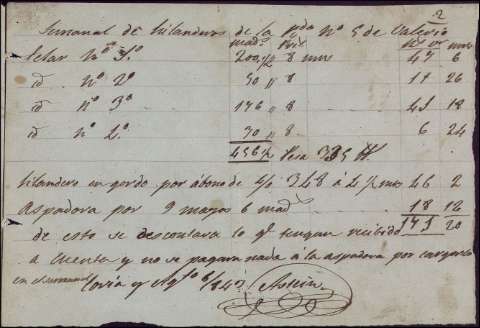 2
Semanal de hilanderos de la Nº 5 de Valerio
mad.s Rs. vn mrs
Telar nº 1.º 200 ½ 8 mrs 47 6
id nº 2º 50 " 8 17 26
id nº 3ª 176 " 8 41 18
id nº 2º 30 " 8 6 24
456 ½ Pesa 335 ℔
hilandero en gordo por abono de ℔ 348 á 4 ½ mrs 46 2
Aspadora por 9 mazos 6 mad 18 12
de esto se descontara lo q.e tengan recibido 173 20
a cuenta y no se pagara nada á la aspadora por cargarlo
en el semanal Soria y Ag.to 6/842